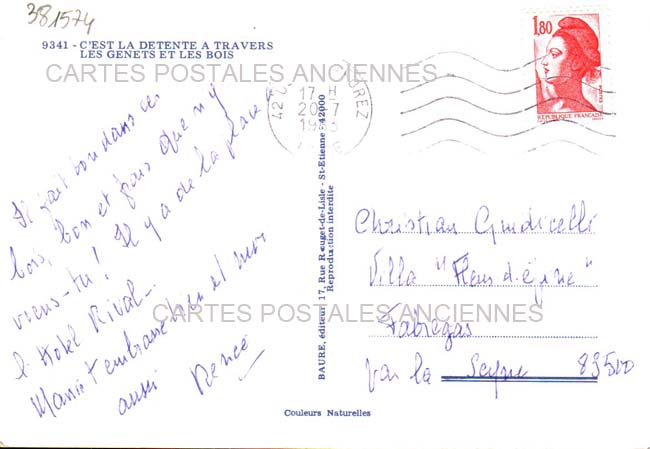 381574
9341 - C'EST LA DETENTE A TRAVERS
LES GENETS ET LES BOIS
CARTES POSTALES ANCIENNES
1,80
POSTES
REPUBLIQUE FRANÇAISE
42 OREZ
17 H
20-7
19
Il fait bon dans ces
bois, bon et frais que n'y
viens-tu ! Il y a de la place à
l'Hotel Rival.
Mamie t'embrasse bien et moi
aussi Renée
BAURE, éditeur 17, Rue Rouget-de-Lisle - St-Etienne 42000
Reproduction interdite
Christian Giudicelli
Villa "Fleurs d'épine"
CARTES POSTALES ANCIENNES
Fabregas
par la Seyne 83500
Couleurs Naturelles